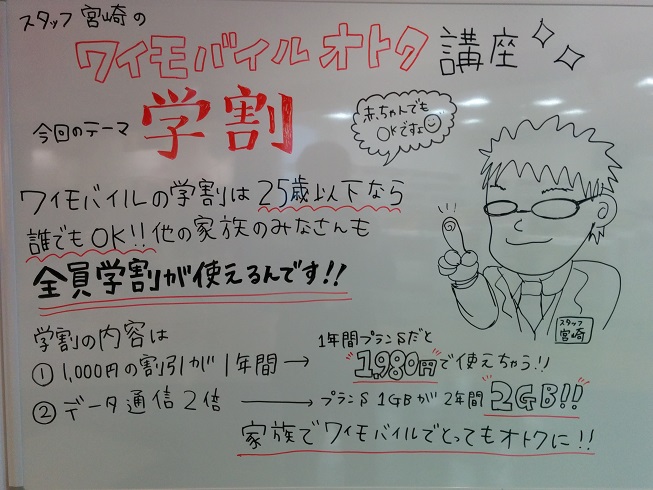 スタッフ 宮崎の
ワイモバイル オトク 講座
今回のテーマ 学割
赤ちゃんでも
OKですよ
ワイモバイルの学割は 25歳以下なら
誰でも OK!! 他の家族のみなさんも
全員学割が使えるんです!!
学割の内容は
① 1,000円の割引が 1年間 →
1年間プランSだと
1,980円で使えちゃう!!
② データ通信 2倍 → プランS 1GBが 2年間 2GB!!
家族でワイモバイルでとってもオトクに!!
スタッフ
宮崎